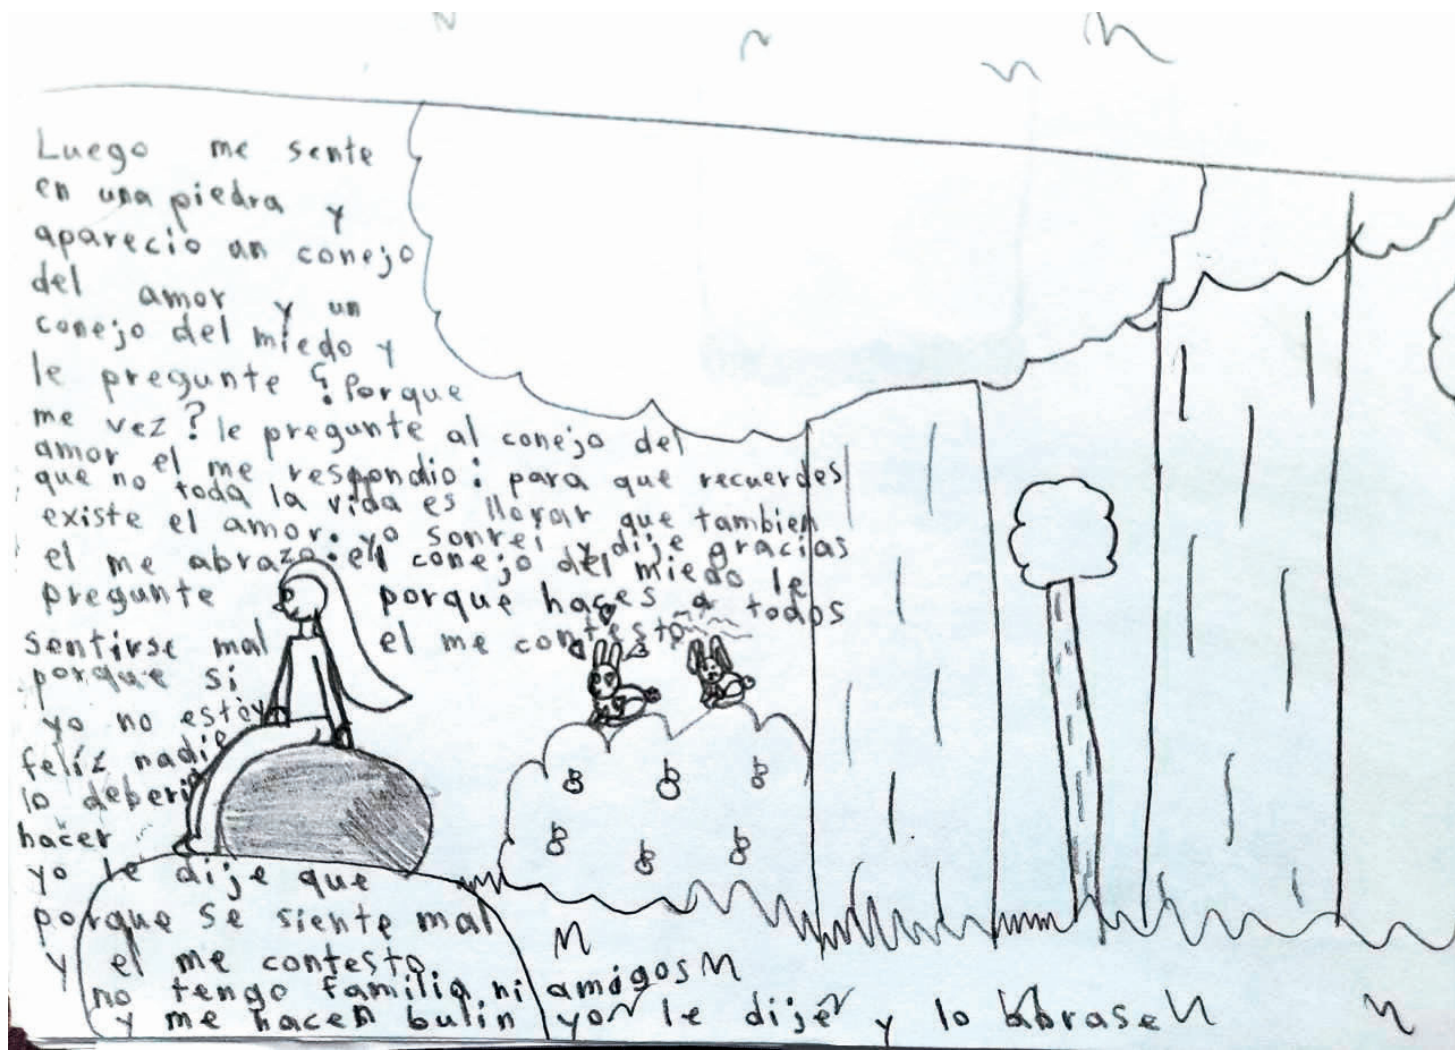 Luego me sente
en una piedra y
aparecio un conejo
del amor y un
conejo del miedo y
le pregunte ¿Porque
me vez? le pregunte al conejo del
amor el me respondio: para que recuerdes
que no toda la vida es llorar que tambien
existe el amor. yo sonrei y dije gracias
el me abrazo. el conejo del miedo le
pregunte porque haces a todos
sentirse mal el me contesto
porque si
yo no estoy
felíz nadie
lo deberia
hacer
yo le dije que
porque se siente mal
y el me contesto
no tengo familia ni amigos
y me hacen bulin yo le dije y lo abrase